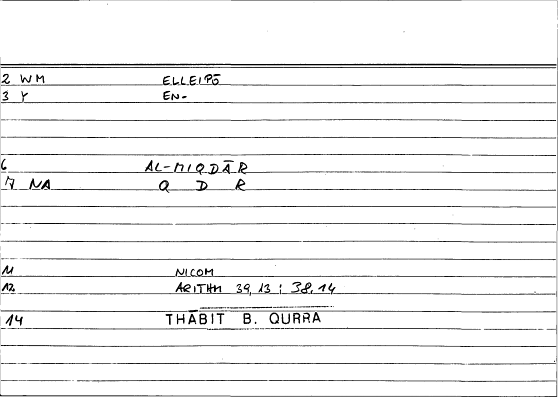 2 WM ELLEIPŌ
3 Y EN-
6 AL-MIQDĀR
7 NA Q D R
11 NICOM
12 ARITHM 39,13 : 38,14
14 THĀBIT B. QURRA